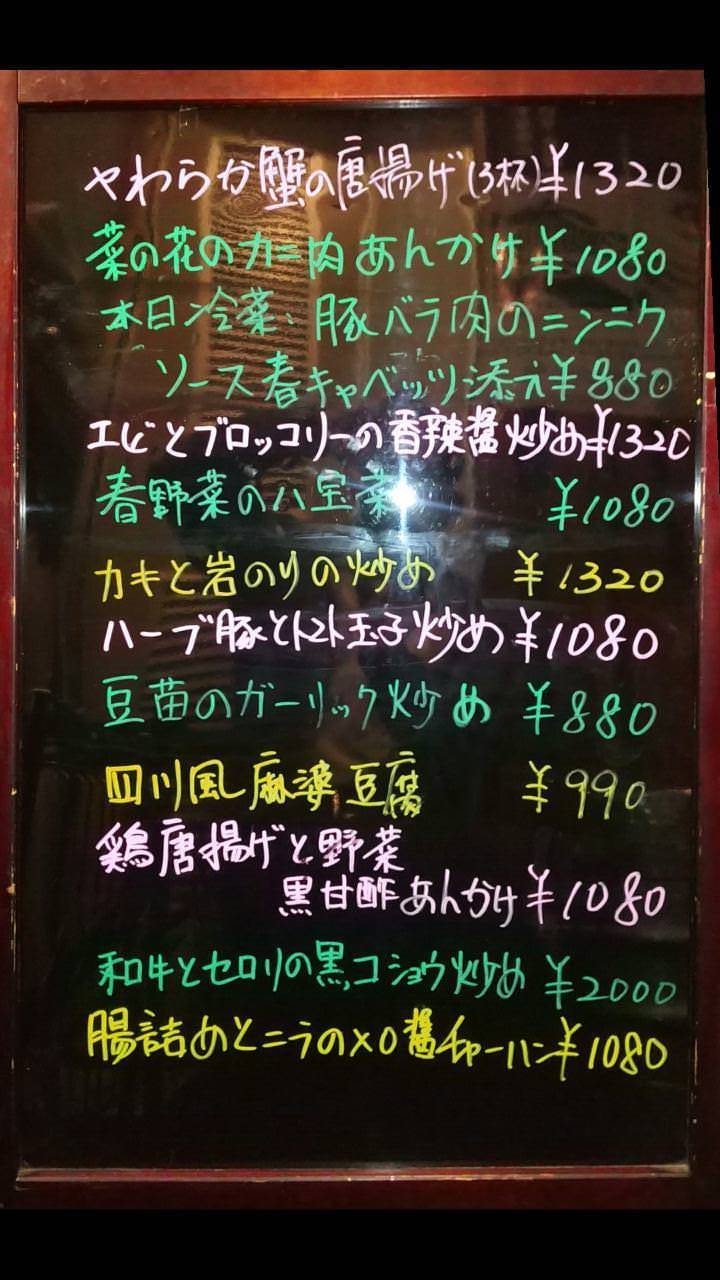 やわらか蟹の唐揚げ(3杯)¥1320
菜の花のカニ肉あんかけ¥1080
本日冷菜、豚バラ肉のニンニク
ソース春キャベッツ添え¥880
エビとブロッコリーの香辣醤炒め¥1320
春野菜の八宝菜 ¥1080
カキと岩のりの炒め ¥1320
ハーブ豚とトマト玉子炒め¥1080
豆苗のガーリック炒め ¥880
四川風麻婆豆腐 ¥990
鶏唐揚げと野菜
黒甘酢あんかけ¥1080
和牛とセロリの黒コショウ炒め ¥2000
腸詰めとニラのXO醤チャーハン¥1080